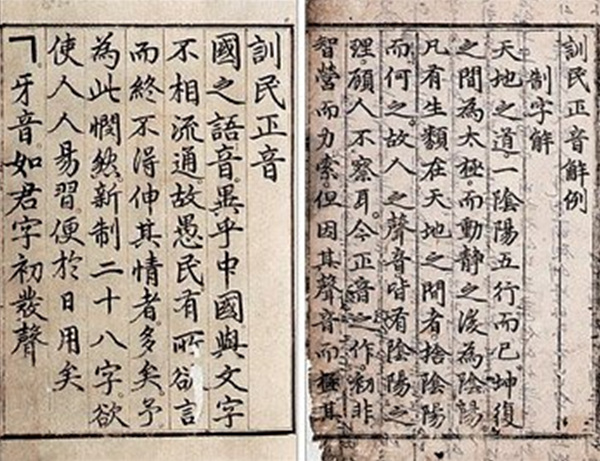 訓民正音
國之語音。異乎中國與文字
不相流通。故愚民有所欲言
而終不得伸其情者。多矣。予
為此憫然。新制二十八字。欲
使人人易習。便於日用矣
ㄱ牙音。如君字初發聲
訓民正音解例
制字解
天地之道。一陰陽五行而已。坤復
之間為太極。而動靜之後為陰陽
凡有生類在天地之間者。捨陰陽
而何之。故人之聲音皆有陰陽之
理。顧人不察耳。今正音之作。初非
智營而力索。但因其聲音而極其